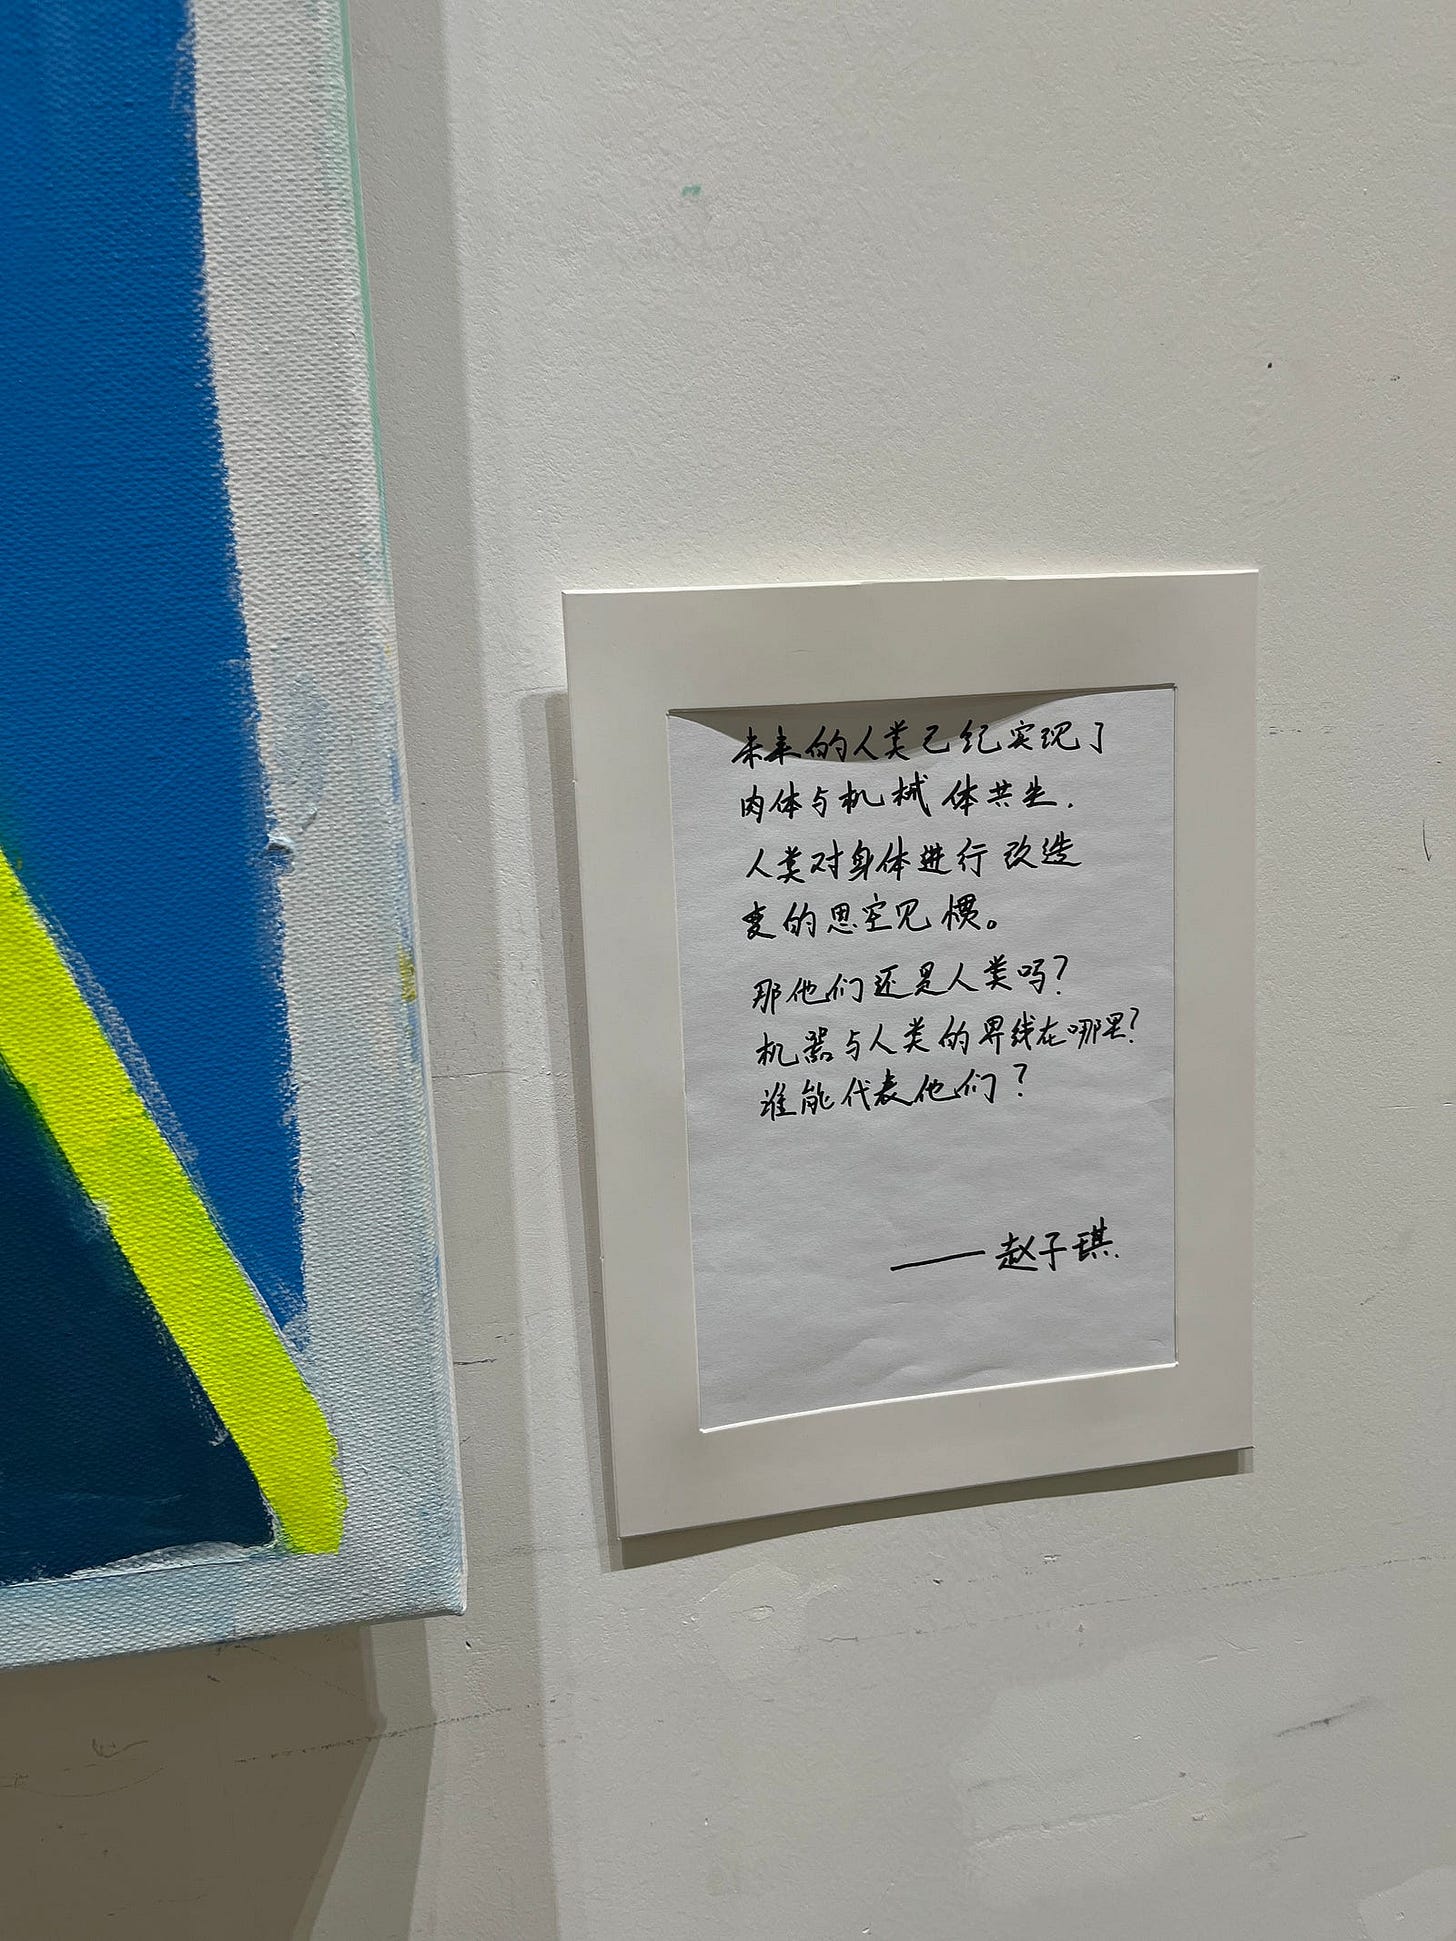 未来的人类已纪实现了
肉体与机械体共生.
人类对身体进行改造
变的思空见惯。
那他们还是人类吗？
机器与人类的界线在哪里？
谁能代表他们？
——赵子琪.